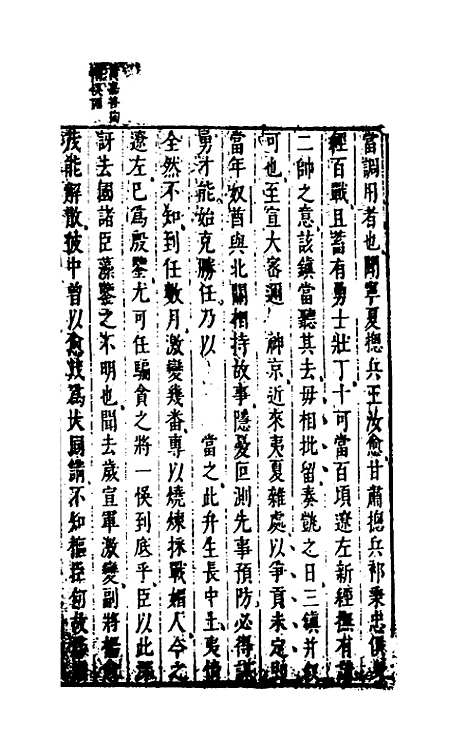 當調用者也聞寧夏總兵王汝愈甘肅總兵祁秉忠俱
經百戰且蓄有勇士壯丁十可當百頃遼左新經撫有
二帥之意該鎮當聽其去毋相扯留奏
可也至宣大密邇 神京近來夷夏雜處以爭貢未定
當年奴酋與北關相持故事隱憂叵測先事預防必得
勇才能始克勝任乃以 當之此弁生長中土夷情
全然不知到任數月激變幾番專以燒煉採戰媚人今之
遼左已為殷鑒尤可任騙貪之將一悞到底乎臣以此
訝去國諸臣藻鑒之不明也聞去歲宣軍激變副將
能解散彼中曾以愈其為大同請不知樞臣何故